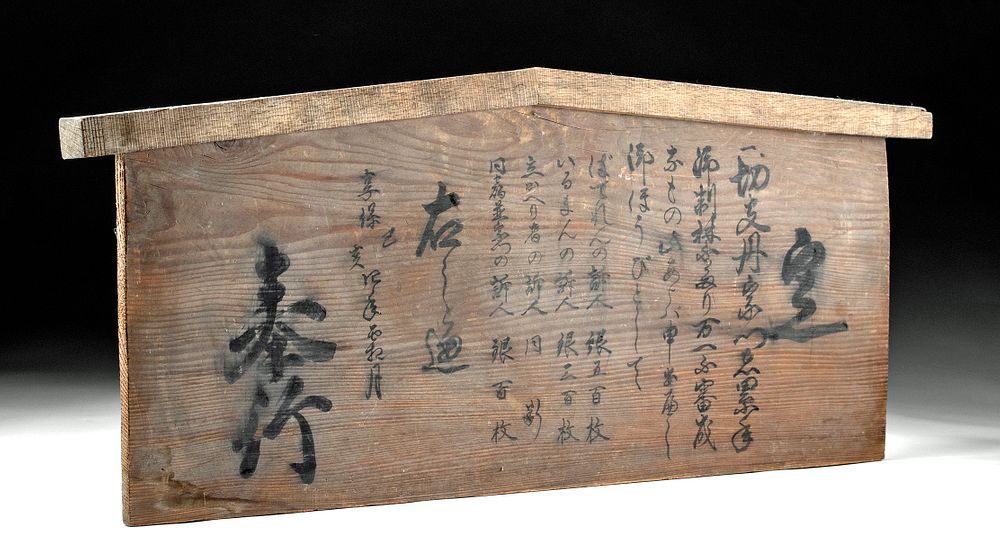 定
一切支丹宗門者累年
御制禁たり万一不審成
ものあらハ申出へし
御ほうびとして
ばてれんの訴人 銀五百枚
いるまんの訴人 銀三百枚
立かへり者の訴人 同 断
同宿並宗門の訴人 銀百枚
右之通
享保 年 月
奉行